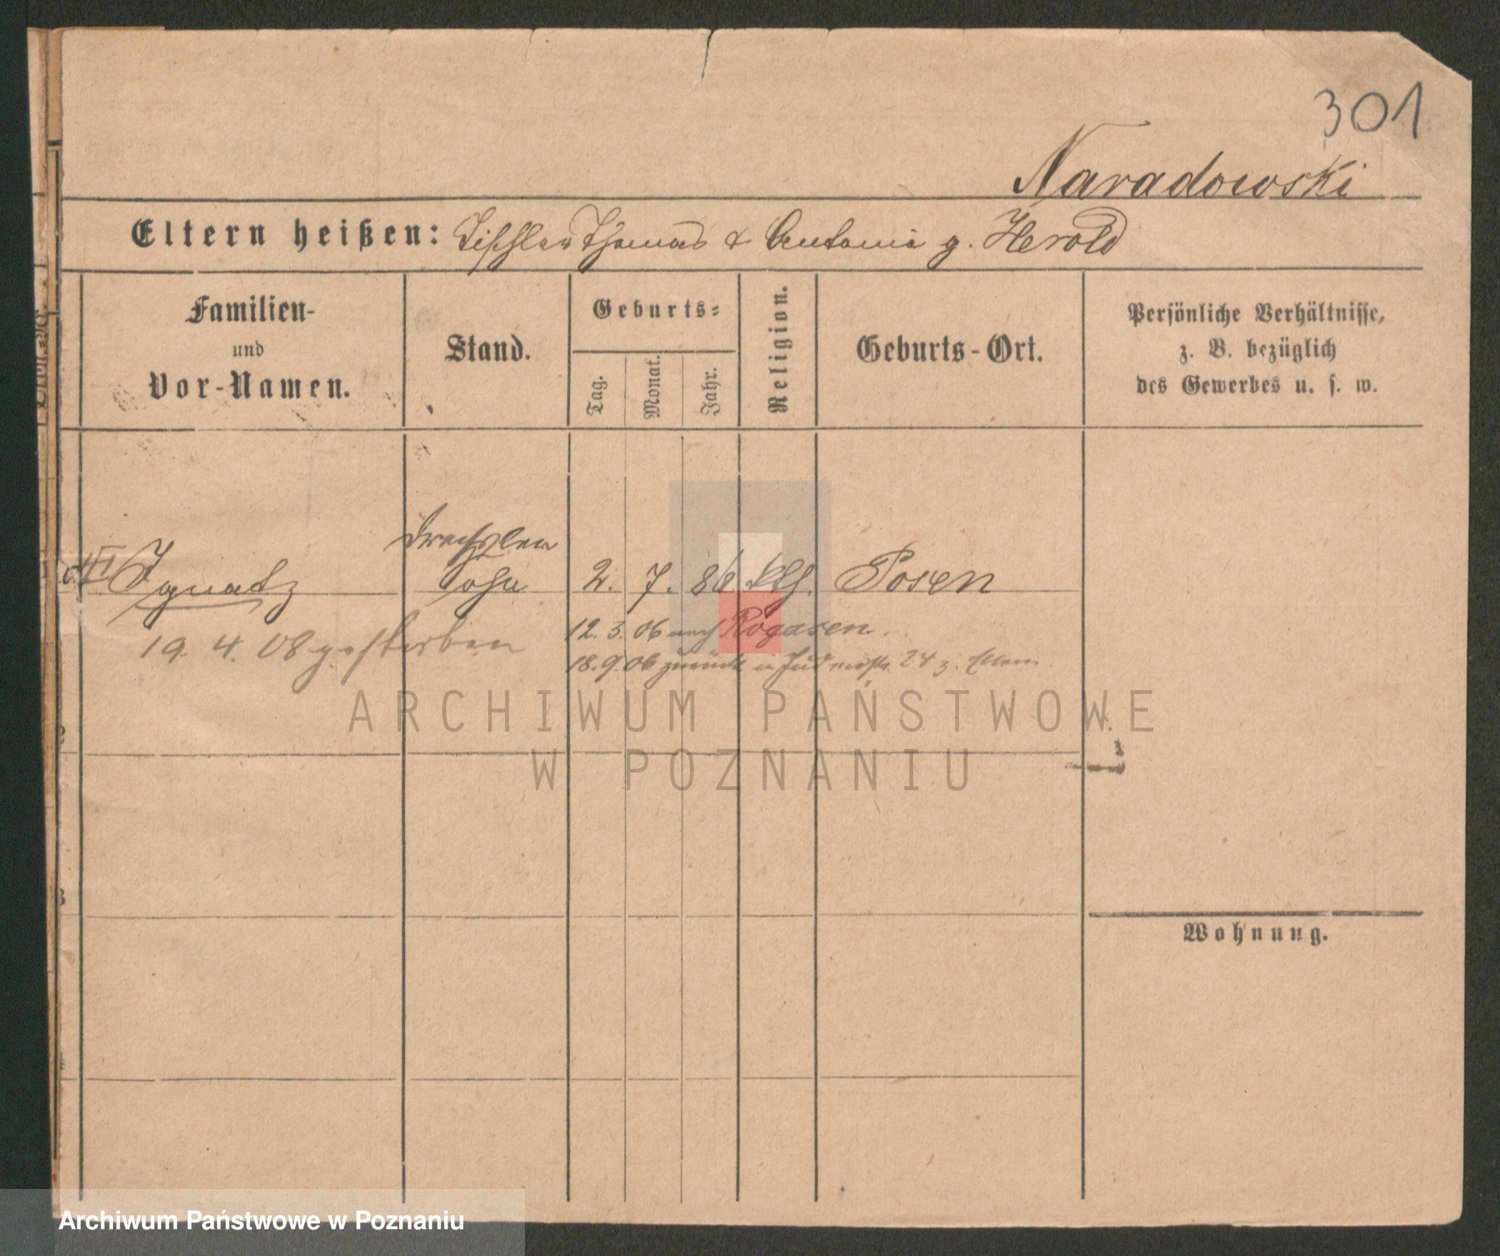 301
Naradowski
Eltern heißen: Tischler Thomas & Antonie g. Herold
Familien-
und
Vor-Namen.
Stand.
Geburts-
Tag.
Monat.
Jahr.
Religion.
Geburts-Ort.
Persönliche Verhältnisse,
z. B. bezüglich
des Gewerbes u. s. w.
Ignatz
Sohn
2. 7. 86 kth. Posen
19. 4. 08 gestorben
12. 3. 06 nach Rogasen.
18. 9. 06 zurück 24 z. Eltern.
ARCHIWUM PAŃSTWOWE
W POZNANIU
Wohnung.
Archiwum Państwowe w Poznaniu